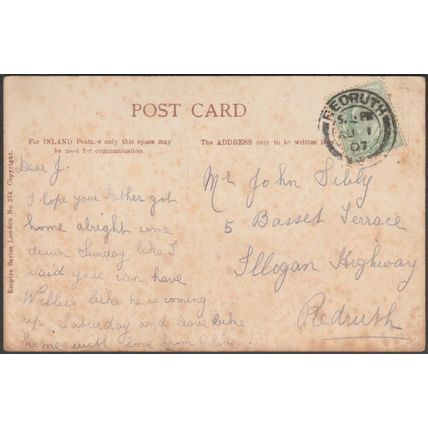 POST CARD
For INLAND Postage only this space may
be used for communication.
The ADDRESS only to be written
REDRUTH
5. PM
AU 1
07
Empire Series London No 374. Copyright.
Dear J.
I hope your Father got
home alright come
down Sunday like I
said you can have
Willie's bike he is coming
up Saturday and leave bike
home with love from
Mr John
5 Basset Terrace
Illogan Highway
Redruth